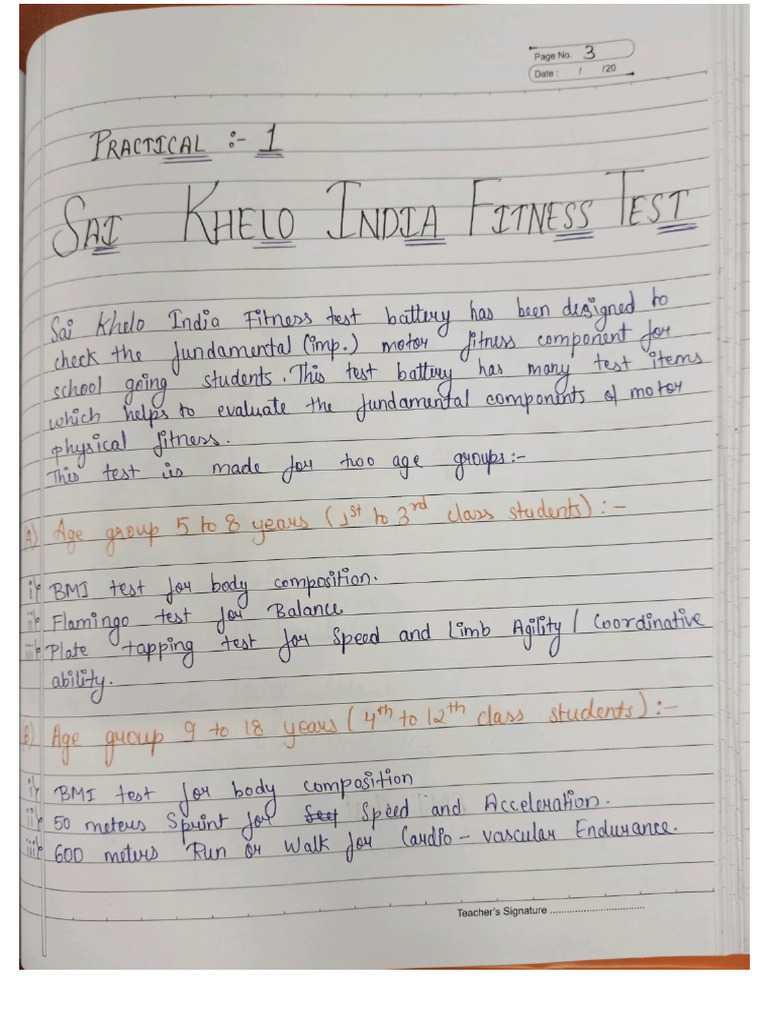 Page No. 3
Date : / /20
PRACTICAL :- 1
SAI KHELO INDIA FITNESS TEST
Sai Khelo India Fitness test battery has been designed to
check the fundamental (imp.) motor fitness component for
school going students. This test battery has many test items
which helps to evaluate the fundamental components of motor
physical fitness.
This test is made for two age groups:-
A) Age group 5 to 8 years (1st to 3rd class students) :-
i) BMI test for body composition.
ii) Flamingo test for Balance
iii) Plate tapping test for Speed and Limb Agility / Coordinative
ability.
B) Age group 9 to 18 years (4th to 12th class students) :-
i) BMI test for body composition
ii) 50 meters Sprint for Speed and Acceleration.
iii) 600 meters Run or Walk for Cardio - vascular Endurance.
Teacher's Signature ................................